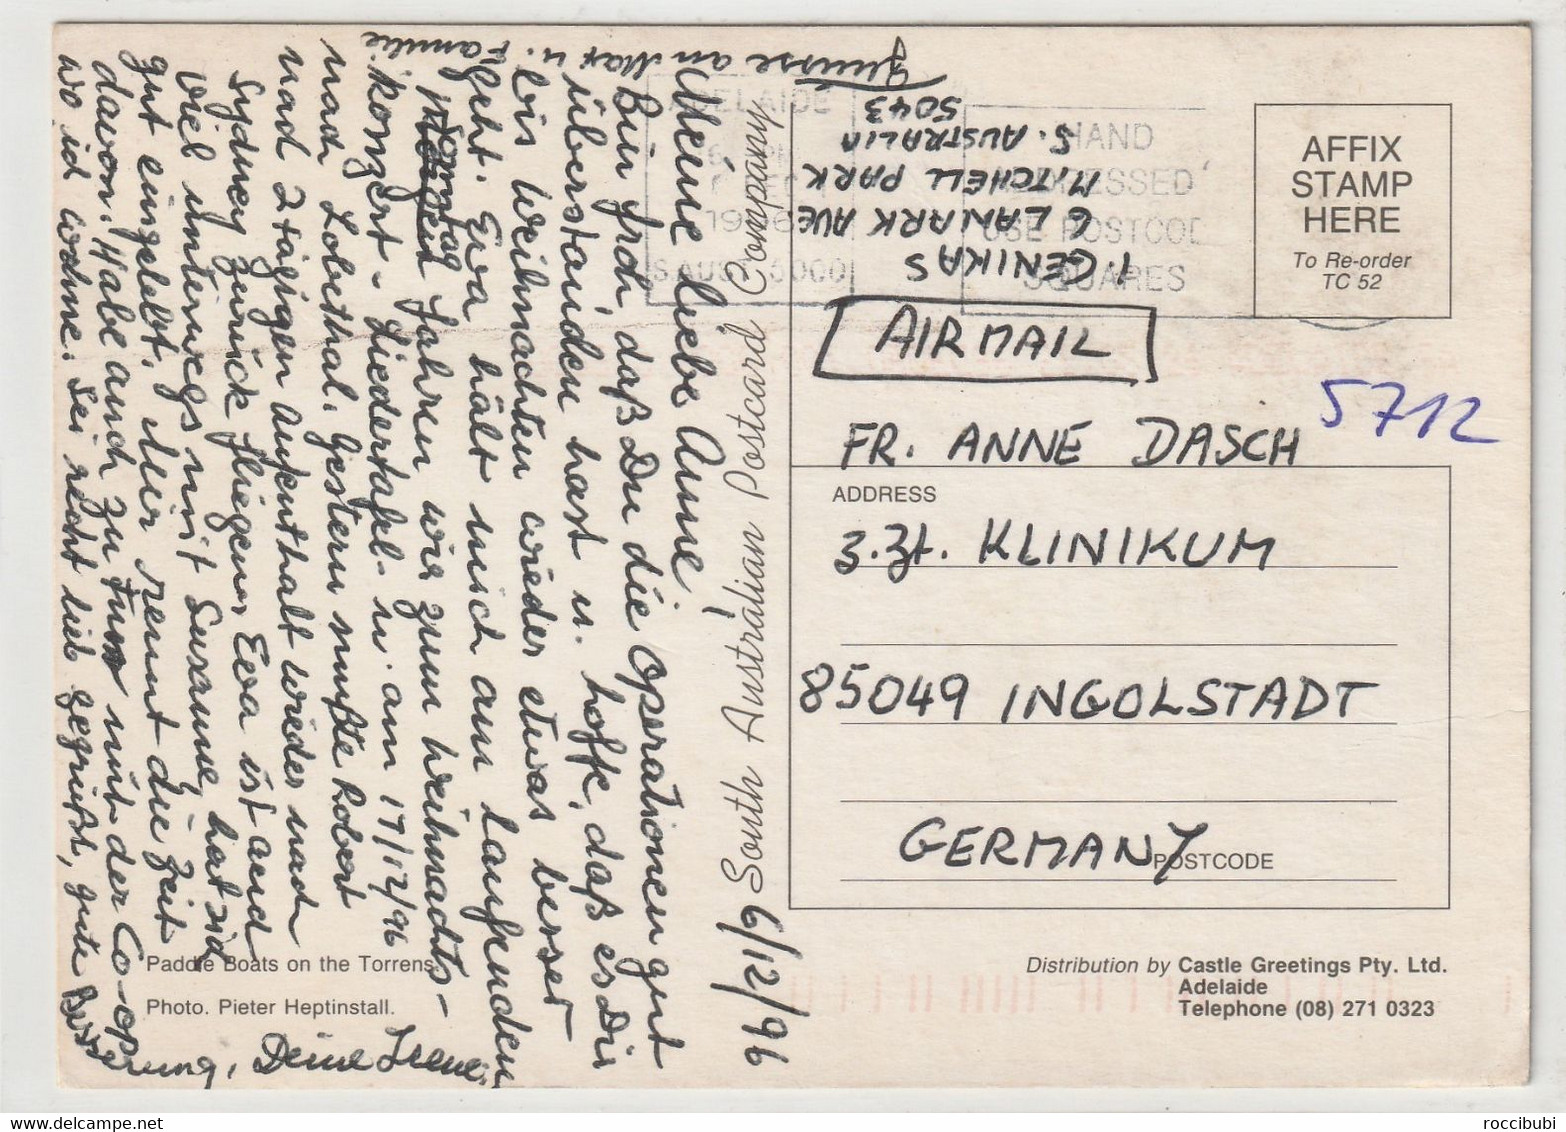 6/12/96
Meine liebe Anne!
Bin froh, daß Du die Operationen gut
überstanden hast u. hoffe, daß es Dir
bis Weihnachten wieder etwas besser
geht. Eva hält mich am Laufenden
Sonntag fahren wir zum Weihnachts-
konzert - Liedertafel - u. am 17/12/96
nach Lobethal. Gestern mußte Robert
nach 2 tägigen Aufenthalt wieder nach
Sydney zurück fliegen. Eva ist auch
viel unterwegs mit Susanne, hat sich
gut eingelebt. Nur rennt die Zeit
davon. Habe auch zu tun mit der Co-op
wo ich wohne. Sei recht lieb gegrüßt, gute
Besserung, Deine Irene.
Grüsse an Max u. Familie.
South Australian Postcard Company
Paddle Boats on the Torrens.
Photo. Pieter Heptinstall.
I. GENIKAS
6 LANARK AVE
MITCHELL PARK
S. AUSTRALIA
5043
ADELAIDE
1996
S AUST 5000
HAND
ADDRESSED
USE POSTCODE
SQUARES
AFFIX
STAMP
HERE
To Re-order
TC 52
AIRMAIL
5712
FR. ANNE DASCH
ADDRESS
z.Zt. KLINIKUM
85049 INGOLSTADT
GERMANY
POSTCODE
Distribution by Castle Greetings Pty. Ltd.
Adelaide
Telephone (08) 271 0323
roccibubi